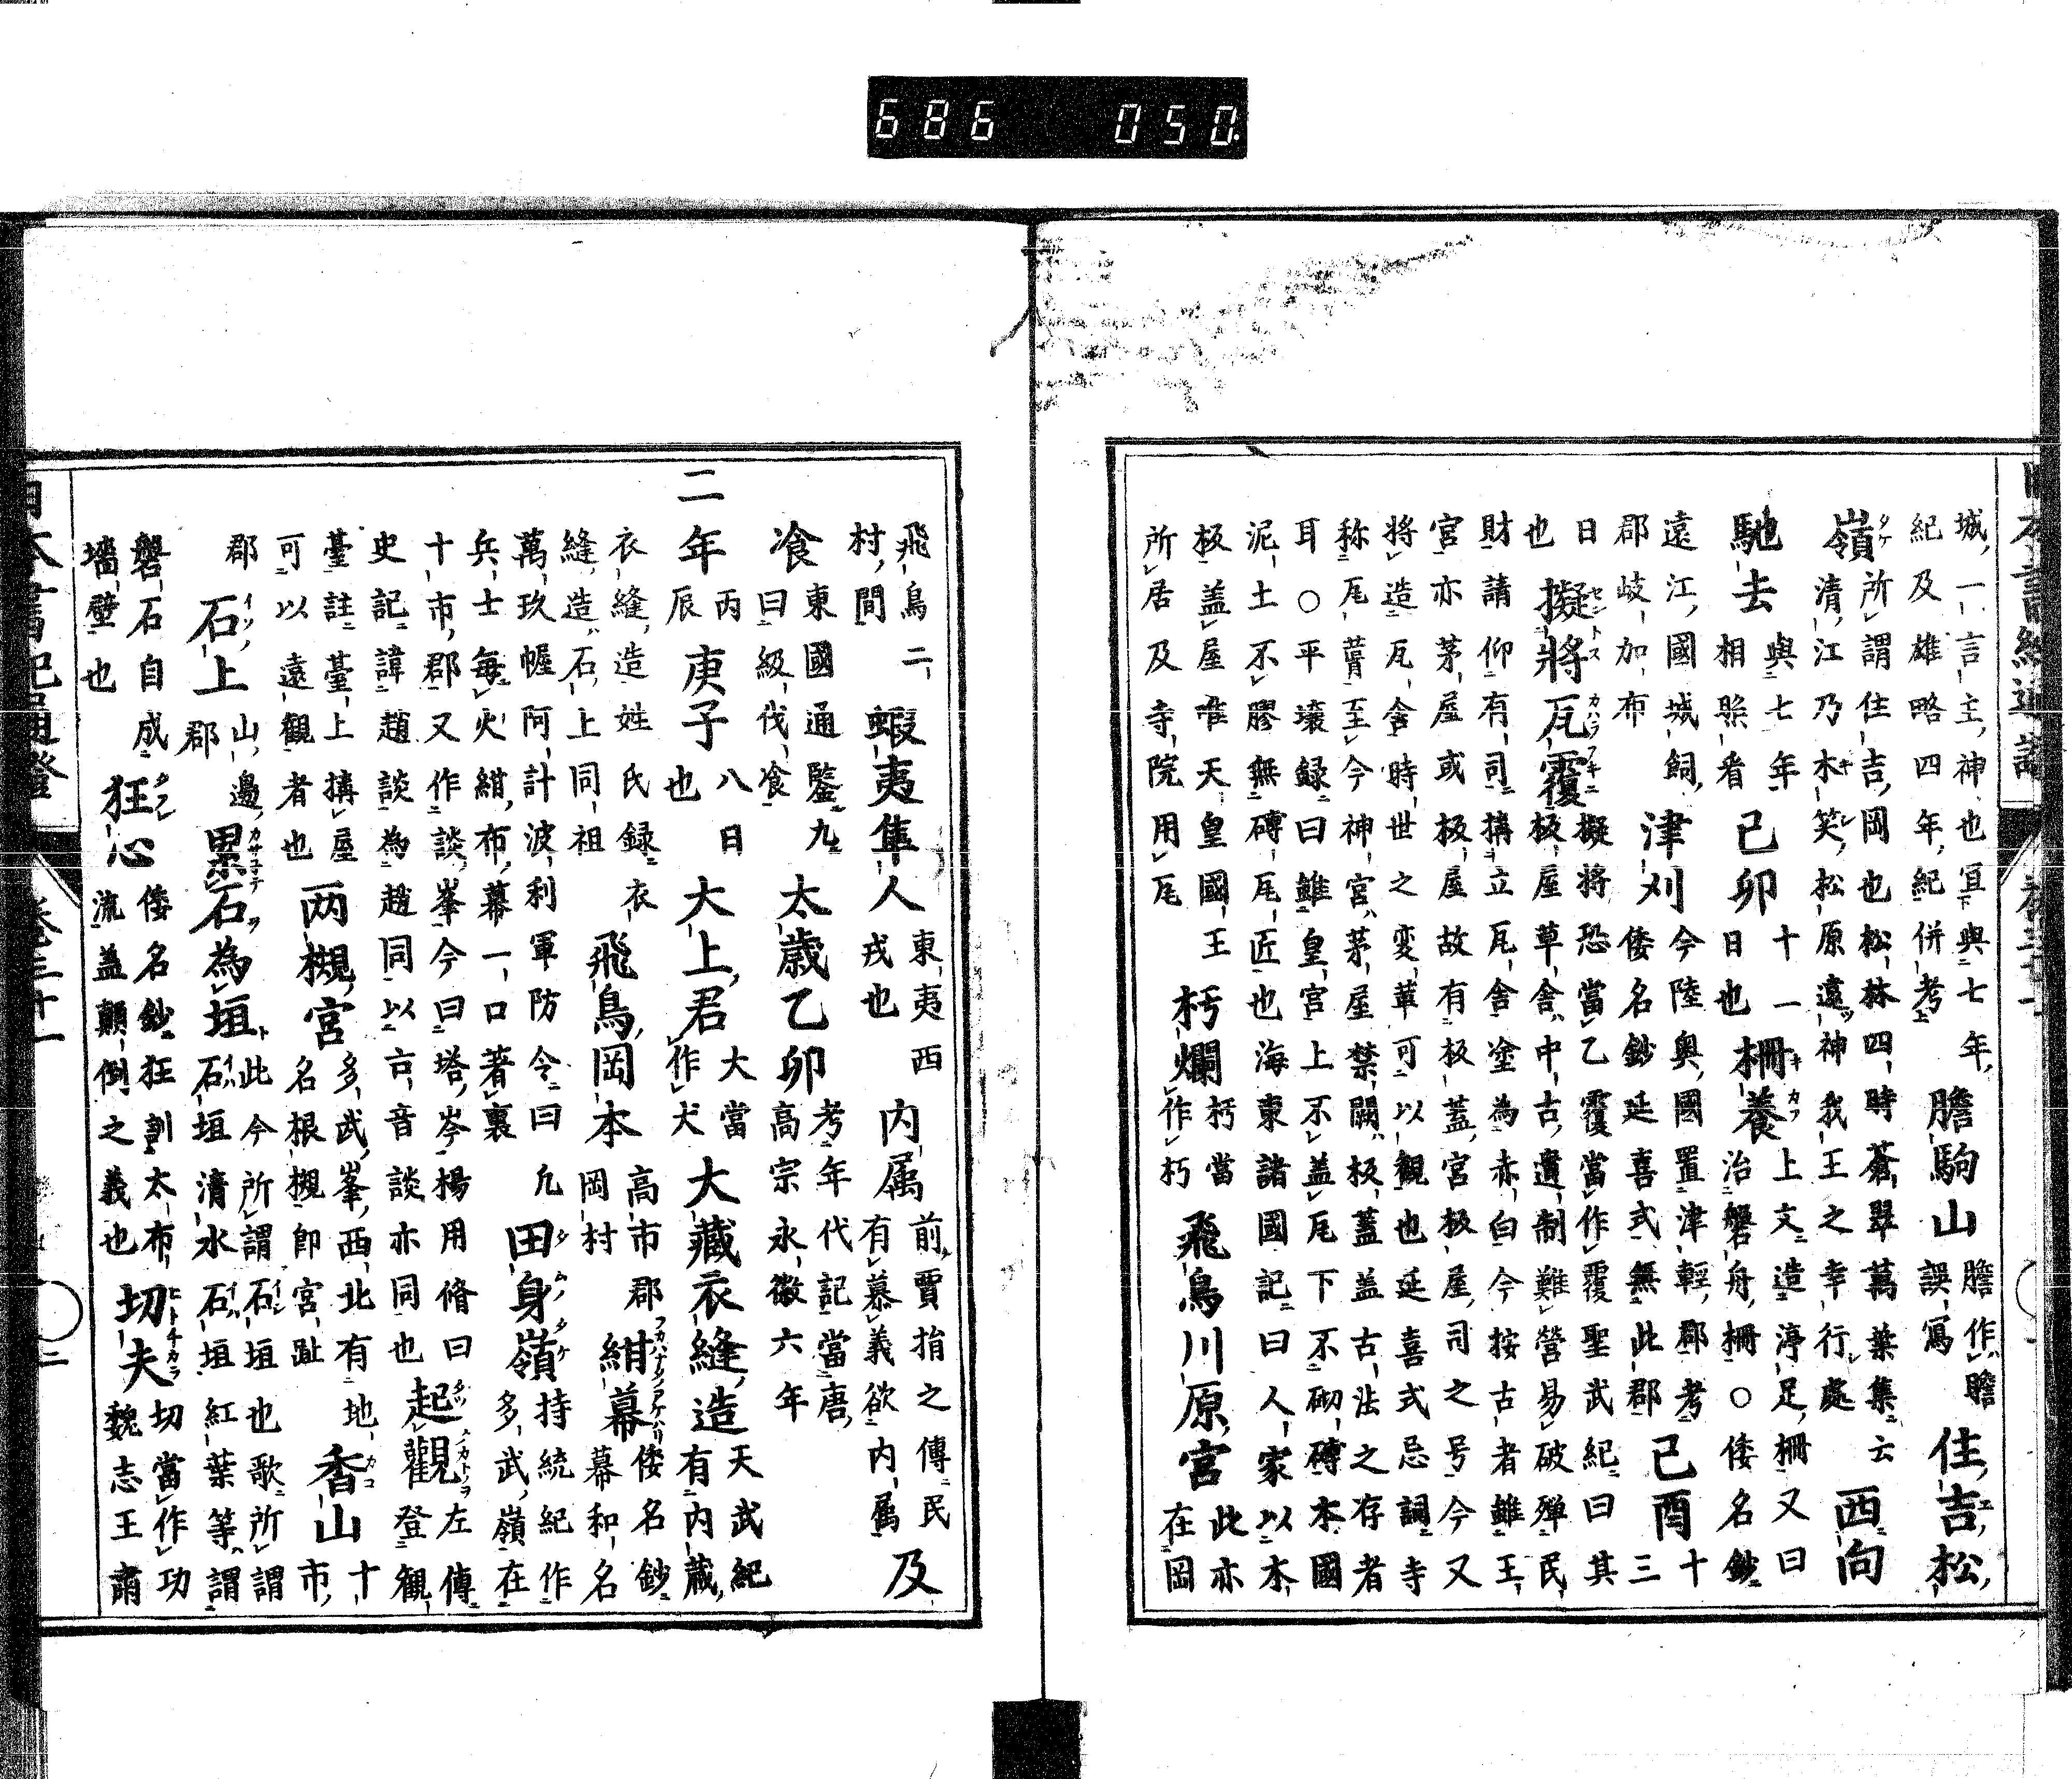 城一言主神也宜與七年紀及雄略四年紀併考膽駒山膽作瞻誤寫住吉松
嶺所謂住吉岡也松林四時蒼翠萬葉集云清江乃木笑松原遠神我王之幸行處西向
馳去與七年相照看己卯十一日也柵養上文造渟足柵又曰治磐舟柵○倭名鈔
遠江國城飼郡岐加布津刈今陸奥國置津輕郡考倭名鈔延喜式無此郡己酉十三
日也擬將瓦覆擬將恐當乙覆當作覆聖武紀曰其板屋草舎中古遺制難營易破殫民
財請仰有司搆立瓦舎塗為赤白今按古者雖王宮亦茅屋或板屋故有板蓋宮板屋司之号今又
將造瓦舎時世之変革可以觀也延喜式忌詞寺称瓦葺至今神宮茅屋禁闕板蓋盖古法之存者
耳○平壌録曰雖皇宮上不盖瓦下不砌磚本國泥土不膠無磚瓦匠也海東諸國記曰人家以木
板盖屋唯天皇國王所居及寺院用瓦朽爛朽當作朽飛鳥川原宮此亦在岡
飛鳥二村間蝦夷隼人東夷西戎也内属前賈指之傳民有慕義欲内属及
飡東國通鑒九曰級伐飡太歳乙卯考年代記當唐高宗永徽六年
二年丙辰庚子八日也大上君大當作犬大藏衣縫造天武紀有内蔵
衣縫造姓氏録衣縫造石上同祖飛鳥岡本高市郡岡村紺幕倭名鈔幕和名
萬玖幄阿計波利軍防令曰凡兵士毎火紺布幕一口著裏田身嶺持統紀作多武嶺在
十市郡又作談峯今曰塔岑楊用脩曰史記諱趙談為趙同以古音談亦同也起觀左傳登觀
臺註臺上搆屋可以遠觀者也两槻宮多武峯西北有地名根槻即宮趾香山十市
郡石上山邊郡累石為垣此今所謂石垣也歌所謂石垣清水石垣紅葉等謂
磐石自成墻壁也狂心倭名鈔狂訓太布流盖顛倒之義也切夫切當作功魏志王肅
日本書紀通證 卷三十一 二
686 050